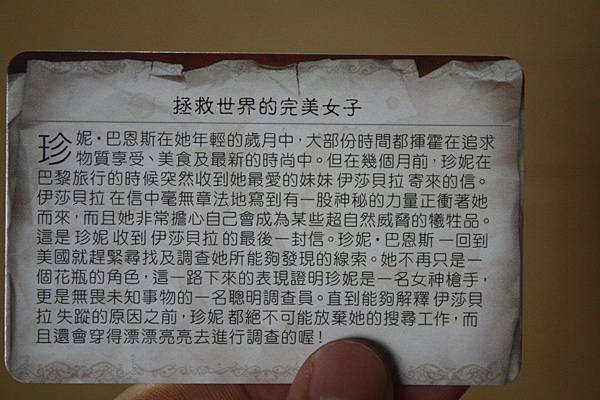 拯救世界的完美女子
珍妮・巴恩斯在她年輕的歲月中，大部份時間都揮霍在追求
物質享受、美食及最新的時尚中。但在幾個月前，珍妮在
巴黎旅行的時候突然收到她最愛的妹妹 伊莎貝拉 寄來的信。
伊莎貝拉 在信中毫無章法地寫到有一股神秘的力量正衝著她
而來，而且她非常擔心自己會成為某些超自然威脅的犧牲品。
這是 珍妮 收到 伊莎貝拉 的最後一封信。珍妮・巴恩斯 一回到
美國就趕緊尋找及調查她所能夠發現的線索。她不再只是一
個花瓶的角色，這一路下來的表現證明珍妮是一名女神槍手，
更是無畏未知事物的一名聰明調查員。直到能夠解釋 伊莎貝
拉 失蹤的原因之前，珍妮 都絕不可能放棄她的搜尋工作，而
且還會穿得漂漂亮亮去進行調查的喔！